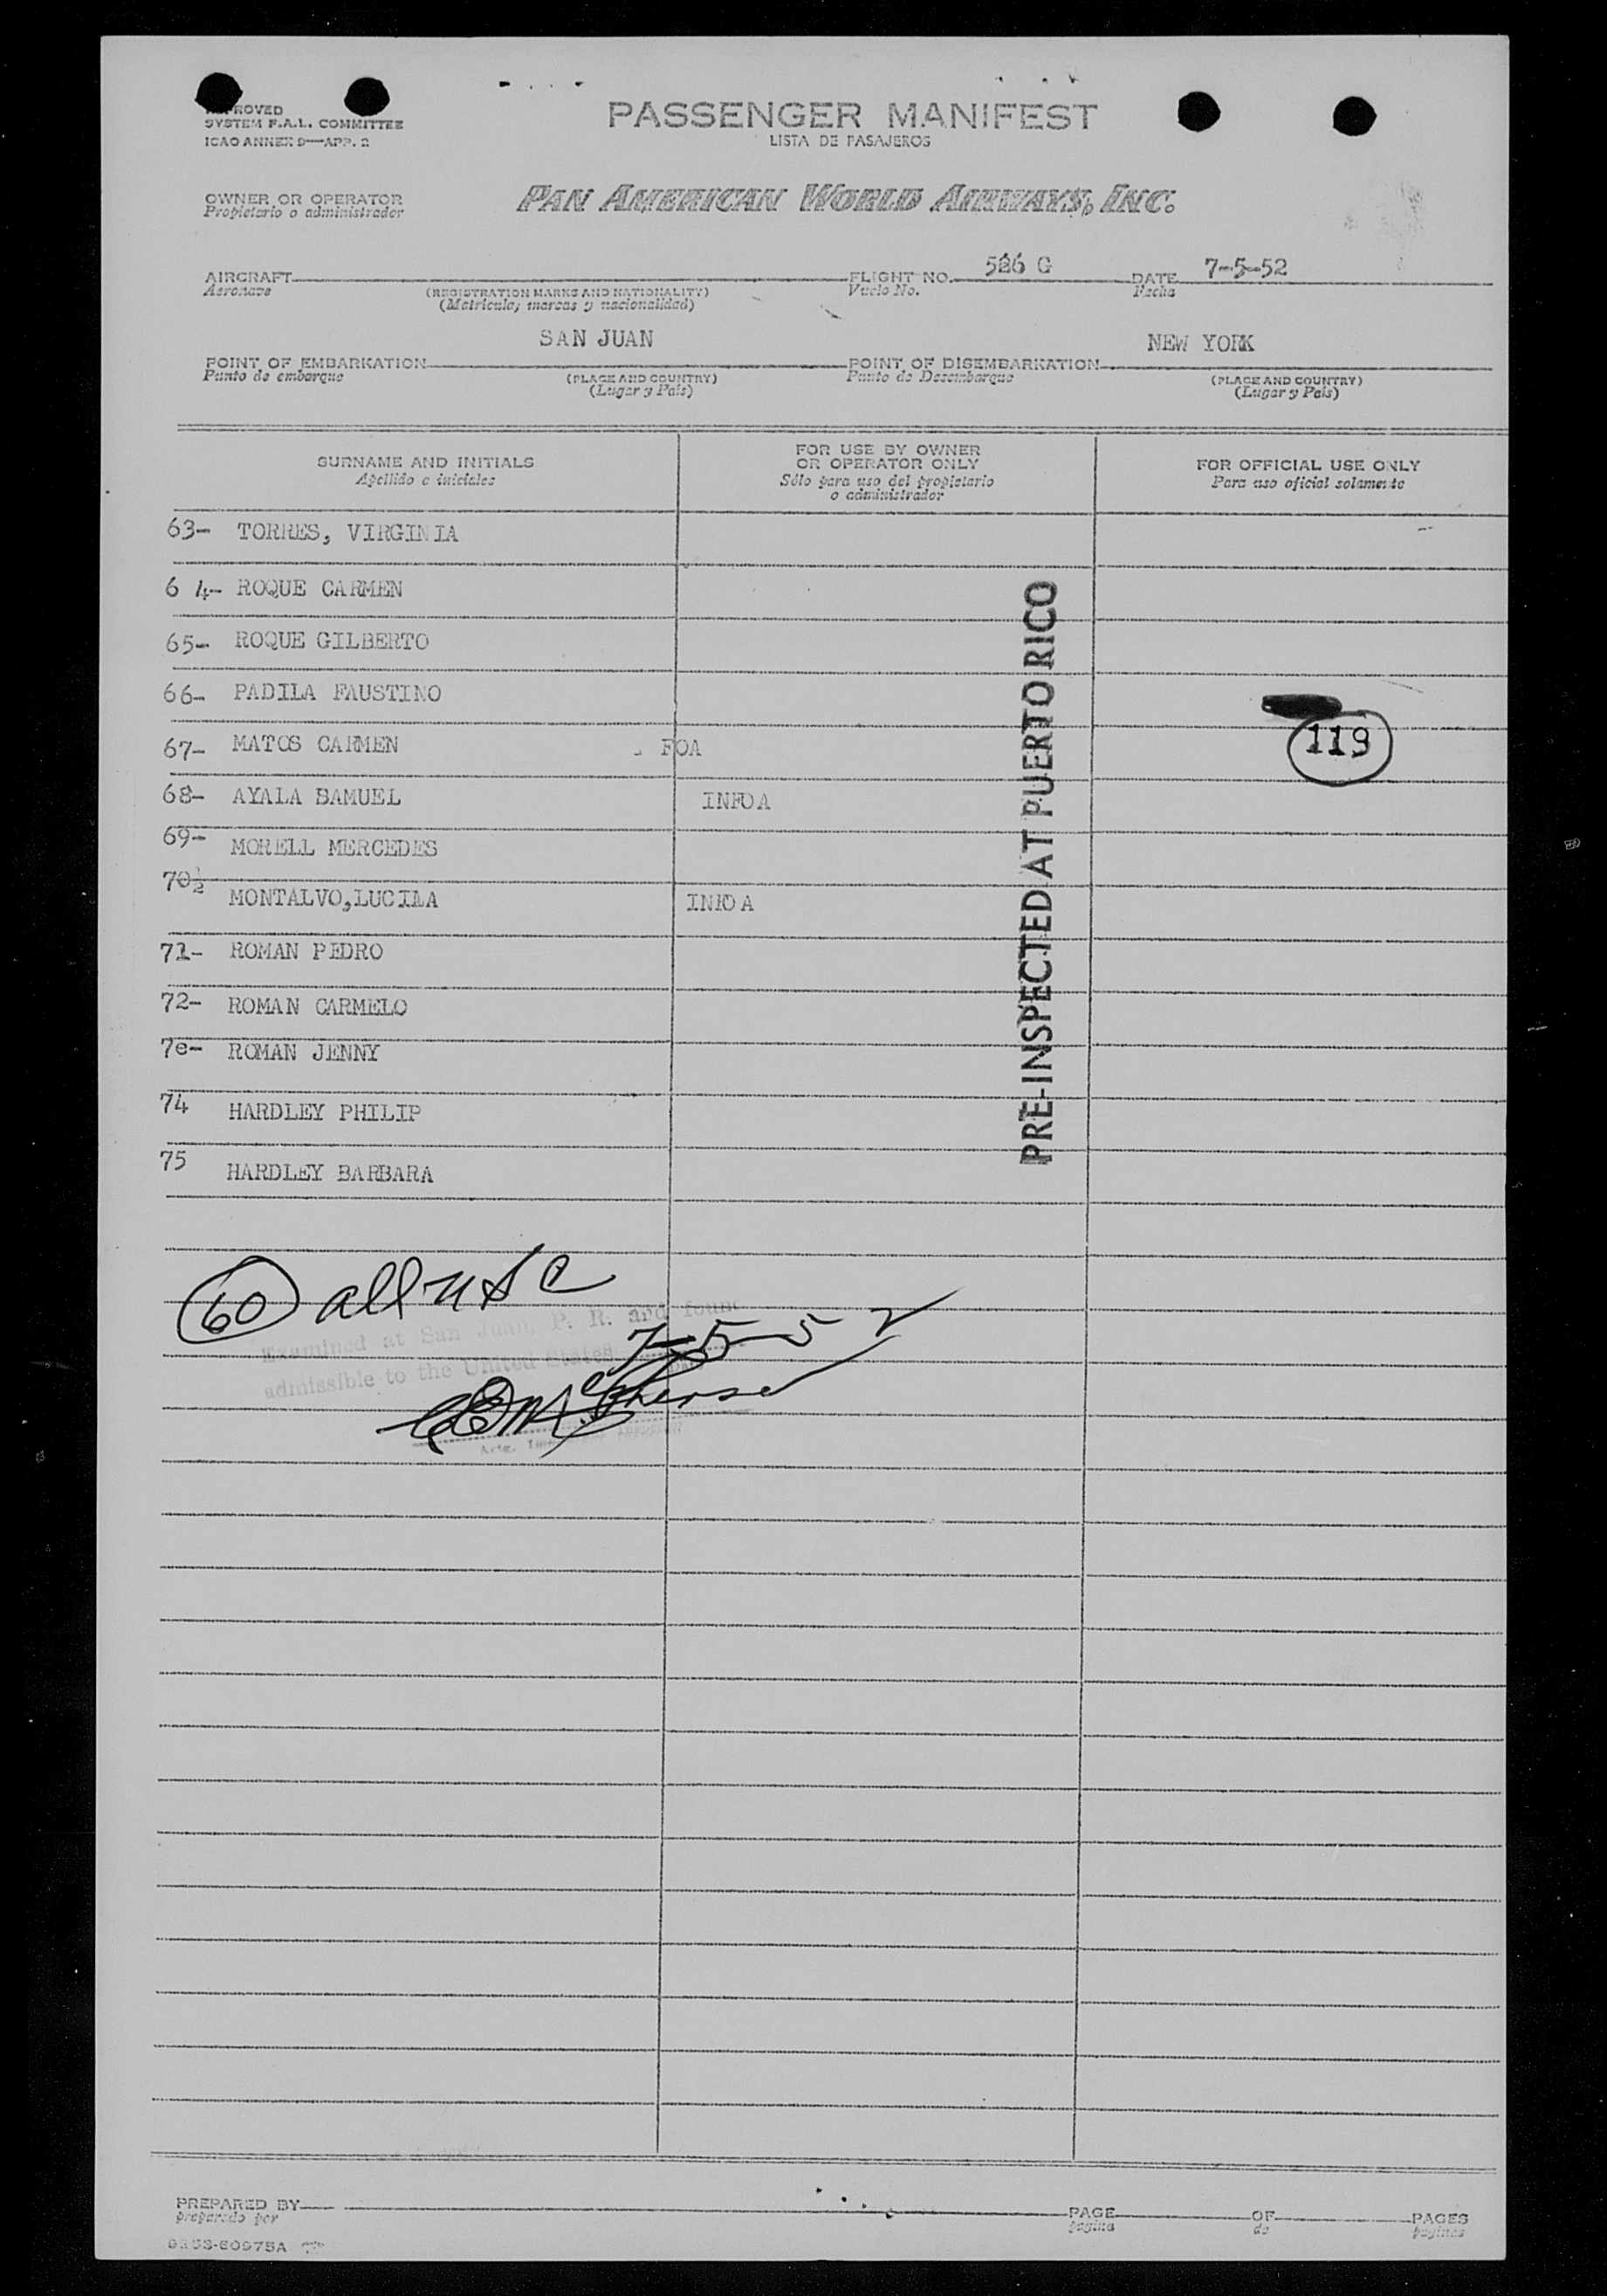 APPROVED
SYSTEM F.A.L. COMMITTEE
ICAO ANNEX 9—APP. 2
PASSENGER MANIFEST
LISTA DE PASAJEROS
OWNER OR OPERATOR
Propietario o administrador
PAN AMERICAN WORLD AIRWAYS, INC.
AIRCRAFT
Aeronave
(REGISTRATION MARKS AND NATIONALITY)
(Matricula, marcas y nacionalidad)
FLIGHT NO. 526 G
Vuelo No.
DATE 7-5-52
Fecha
POINT OF EMBARKATION SAN JUAN
Punto de embarque
(PLACE AND COUNTRY)
(Lugar y País)
POINT OF DISEMBARKATION NEW YORK
Punto de Desembarque
(PLACE AND COUNTRY)
(Lugar y País)
SURNAME AND INITIALS
Apellido e iniciales
FOR USE BY OWNER
OR OPERATOR ONLY
Sólo para uso del propietario
o administrador
FOR OFFICIAL USE ONLY
Para uso oficial solamente
63- TORRES, VIRGINIA
6 4- ROQUE CARMEN
65- ROQUE GILBERTO
66- PADILA FAUSTINO
67- MATOS CARMEN FOA
119
68- AYALA SAMUEL INFOA
69- MORELL MERCEDES
70½ MONTALVO,LUCILA INFOA
71- ROMAN PEDRO
72- ROMAN CARMELO
7e- ROMAN JENNY
74 HARDLEY PHILIP
75 HARDLEY BARBARA
PRE-INSPECTED AT PUERTO RICO
60 all USC
Examined at San Juan, P. R. and found
admissible to the United States
7-5-52
PREPARED BY
preparado por
PAGE
pagina
OF
de
PAGES
paginas